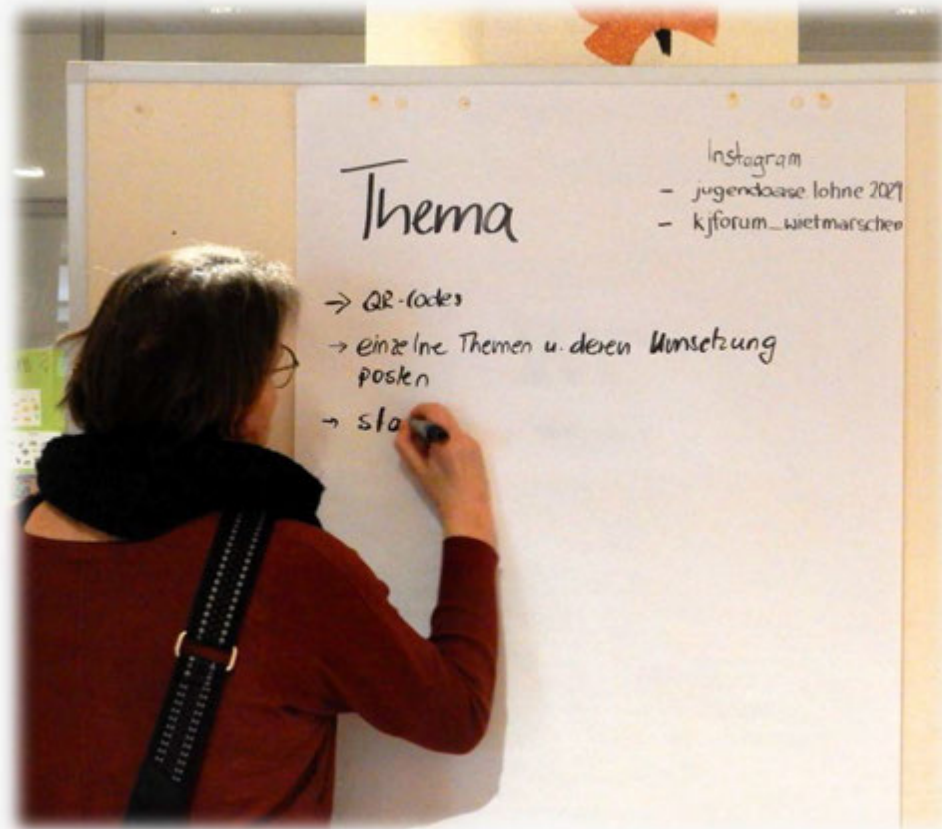 Thema
Instagram
- jugendoase.lohne 2021
- kjforum_wietmarschen
→ QR-Codes
→ einzelne Themen u. deren Umsetzung
posten
→ sta